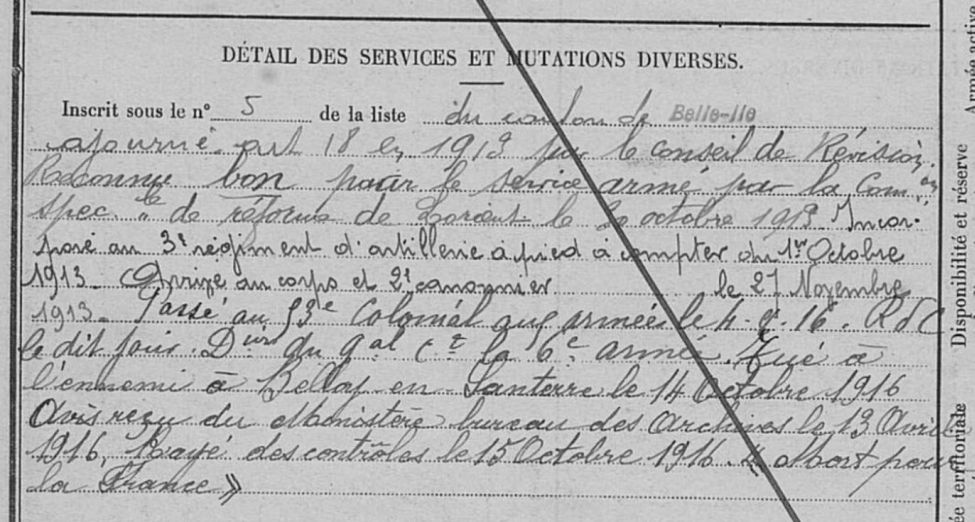 DÉTAIL DES SERVICES ET MUTATIONS DIVERSES.
Inscrit sous le n° 5 de la liste du canton de Belle-Ile
ajourné art 18 en 1913 par le conseil de Révision.
Reconnu bon pour le service armé par la Com on
spec. le de réforme de Lorient le octobre 1913. Incor-
poré au 3e régiment d'artillerie à pied à compter du 1er Octobre
1913. Arrivé au corps et 2e canonnier le 27 Novembre
1913. Passé au 53e Colonial aux armées le 4. 16. RdC
le dit jour. Don du Gal Ct la 6e armée. Tué à
l'ennemi à Belloy en Santerre le 14 Octobre 1916
Avis reçu du Ministère bureau des Archives le 13 Avril
1916, Rayé des contrôles le 15 Octobre 1916. « Mort pour
la France »
Armée active
Disponibilité et réserve
ée territoriale